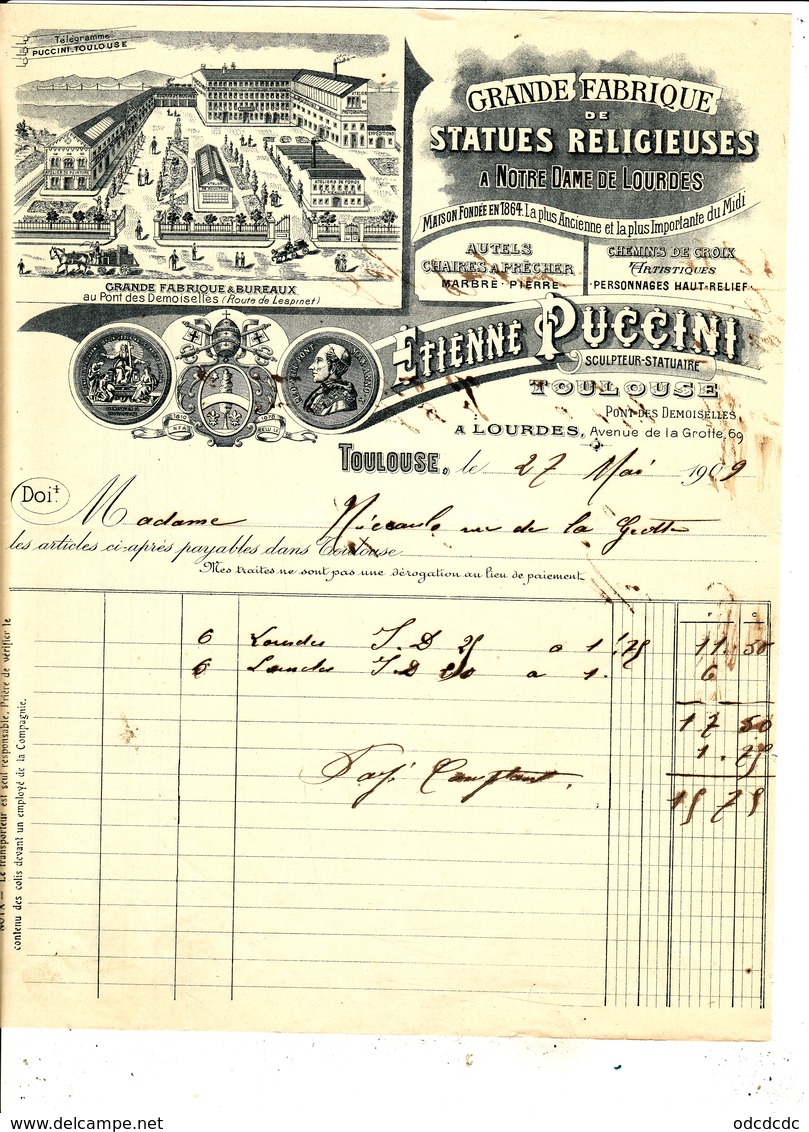 Télégramme
PUCCINI_TOULOUSE
GRANDE FABRIQUE & BUREAUX
au Pont des Demoiselles (Route de Lespinet)
GRANDE FABRIQUE
DE
STATUES RELIGIEUSES
A NOTRE DAME DE LOURDES
MAISON FONDÉE EN 1864. La plus Ancienne et la plus Importante du Midi
AUTELS
CHAIRES A PRÊCHER
MARBRE PIERRE
CHEMINS DE CROIX
ARTISTIQUES
PERSONNAGES HAUT-RELIEF
ETIENNE PUCCINI
SCULPTEUR-STATUAIRE
TOULOUSE
PONT DES DEMOISELLES
A LOURDES, Avenue de la Grotte, 69
1810 1878
TOULOUSE, le 27 Mai 1909
Doit
Madame rue de la Grotte
les articles ci-après payables dans Toulouse
Mes traites ne sont pas une dérogation au lieu de paiement
F C
6 Lourdes I.D 25 a 1.75 11 50
6 Lourdes I D a 1. 6
17 50
1.75
15 75
Payé Comptant
NOTA — Le transporteur est seul responsable. Prière de vérifier le
contenu des colis devant un employé de la Compagnie.
odcdcdc